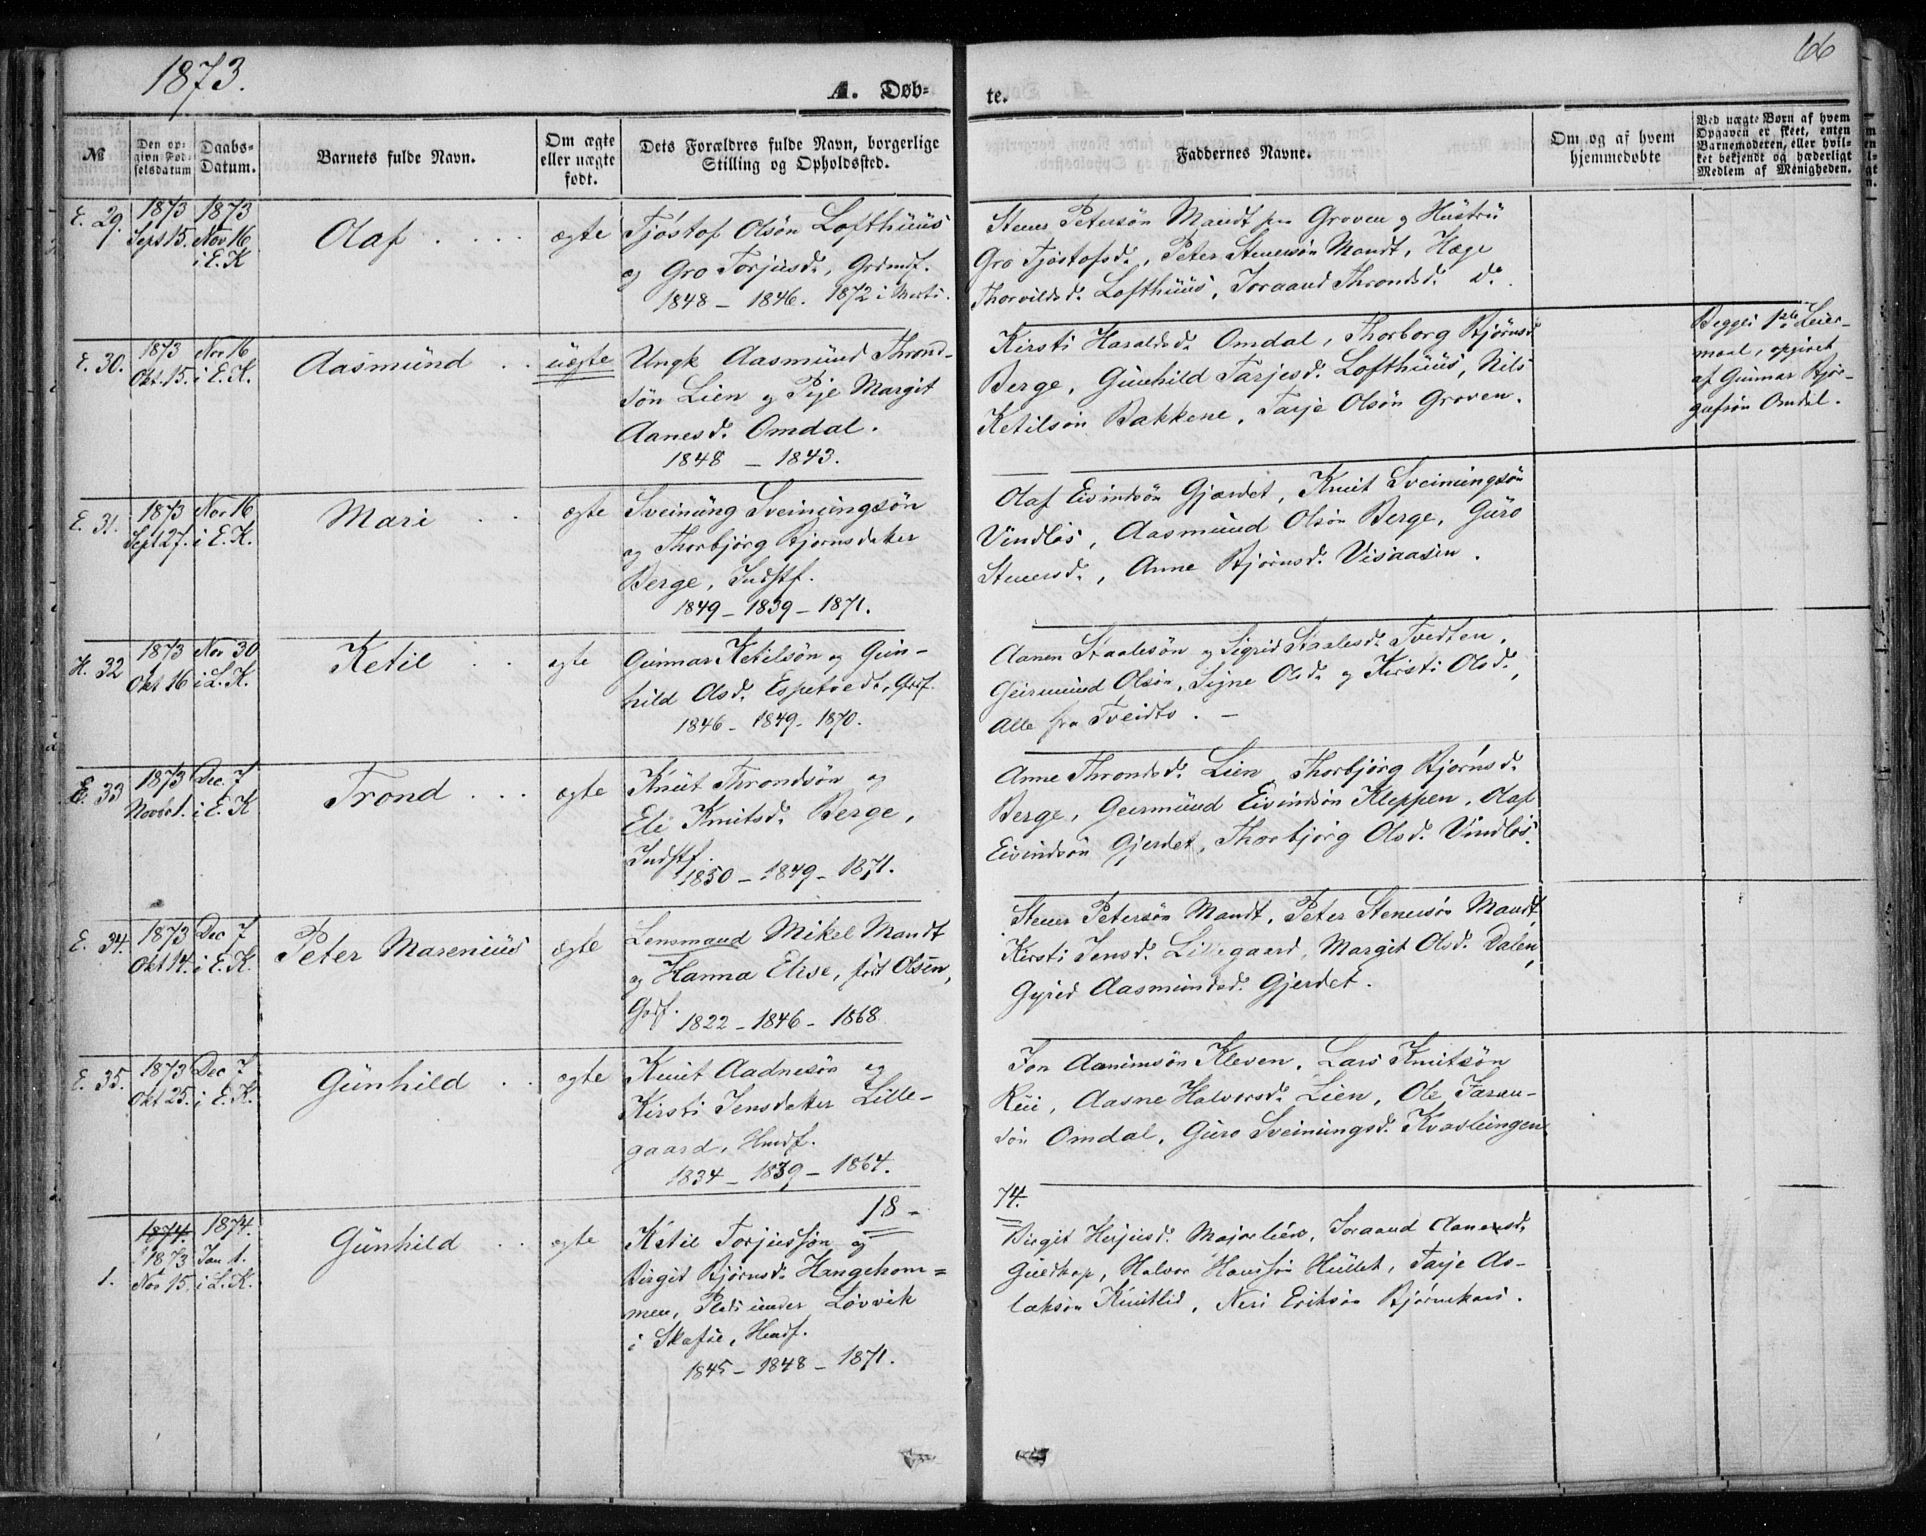 1873.
66
A. Døb-
te.
№
Den op-
givn Fød-
selsdatum
Daabs-
Datum.
Barnets fulde Navn.
Om ægte
eller uægte
født.
Dets Forældres fulde Navn, borgerlige
Stilling og Opholdssted.
Faddernes Navne.
Om og af hvem
hjemmedøbte
Ved uægte Børn af hvem
Opgaven er skeet, enten
Barnemoderen, eller hvil-
ket bekjendt og hæderligt
Medlem af Menigheden.
E. 29.
1873
Sept 15.
1873
Nov 16
i E. K
Olaf
ægte
Tjøstof Olsön Lofthuus
og Gro Torjusd.,
1848 - 1846. 1872
Stener Petersön Mandt paa Groven og Hustru
Gro Tjøstofsd., Peter Stenersön Mandt, Hæge
Thorvildsd. Lofthuus, Joraand Throndsd. d.
E. 30.
1873
Okt. 15.
Nov 16
i E. K.
Aasmund
uægte
Ungk Aasmund Thrond-
sön Lien og Pije Margit
Aanesd. Omdal.
1848 - 1843.
Kirsti Haraldsd. Omdal, Thorborg Bjørnsd
Berge, Gunhild Tarjesd. Lofthuus, Nils
Ketilsön Bakkene, Tarje Olsön Groven.
Begges 1ste Leier-
maal, opgivet
af Gunnar Bjør-
gufsön Omdal.
E. 31.
1873
Sept 27.
Nov 16
i E. K.
Mari
ægte
Sveinung Sveinungsön
og Thorbjørg Bjørnsdatter
Berge, Indstf.
1849 - 1839 - 1871.
Olaf Eivindsön Gjærdet, Knut Sveinungsön
Vindlös, Aasmund Olsön Berge, Guro
Stenersd., Anne Bjørnsd. Visaasen.
H. 32
1873
Okt 16
Nov 30
i L. K.
Ketil
ægte
Gunnar Ketilsön og Gun-
hild Olsd. Espetvedt, Grdf.
1846 - 1849 - 1870.
Aanen Staalesön og Sigrid Staalesd. Tvedten,
Geirmund Olsön, Signe Olsd. og Kirsti Olsd,
Alle fra Tveidto. -
E. 33
1873
Novbr 1.
Dec. 7
i E. K
Trond
ægte
Knut Throndsön og
Eli Knutsd. Berge,
Indstf.
1850 - 1849 - 1871.
Anne Throndsd. Lien, Thorbjørg Bjørnsd.
Berge, Geirmund Eivindsön Kleppen, Olaf
Eivindsön Gjerdet, Thorbjørg Olsd. Vindlös.
E. 34.
1873
Okt 14.
Dec 7
i E. K.
Peter Marenius
ægte
Lensmand Mikel Mandt
og Hanna Elise, født Olsen,
Grdf.
1822 - 1846 - 1868
Stener Petersön Mandt, Peter Stenersön Mandt,
Kirsti Jensd. Lillegaard, Margit Olsd. Dalen,
Gyrid Aasmundsd. Gjerdet.
E. 35.
1873
Okt 25.
Dec 7
i E. K.
Gunhild
ægte
Knut Aadnesön og
Kirsti Jensdatter Lille-
gaard, Husmf.
1834 - 1839 - 1864.
Jon Aanimsön Kleven, Lars Knutsön
Rui, Aasne Halvorsd. Lien, Ole Taran-
sön Omdal, Guro Sveinungsd. Kvavlingen.
18-
74.
1.
1874.
1873
Nov 15.
1874.
Jan 1.
i L. K.
Gunhild
ægte
Ketil Torjussön og
Birgit Bjørnsd. Hangehom-
men, Plads under Løvvik
i Skafsae, Husmf.
1845 - 1848 - 1871.
Birgit Herjusd. Majorlien, Joraand Aanensd.
Guldkop, Halvor Hanssön Hullet, Tarje As-
laksön Knutlid, Neri Eriksön